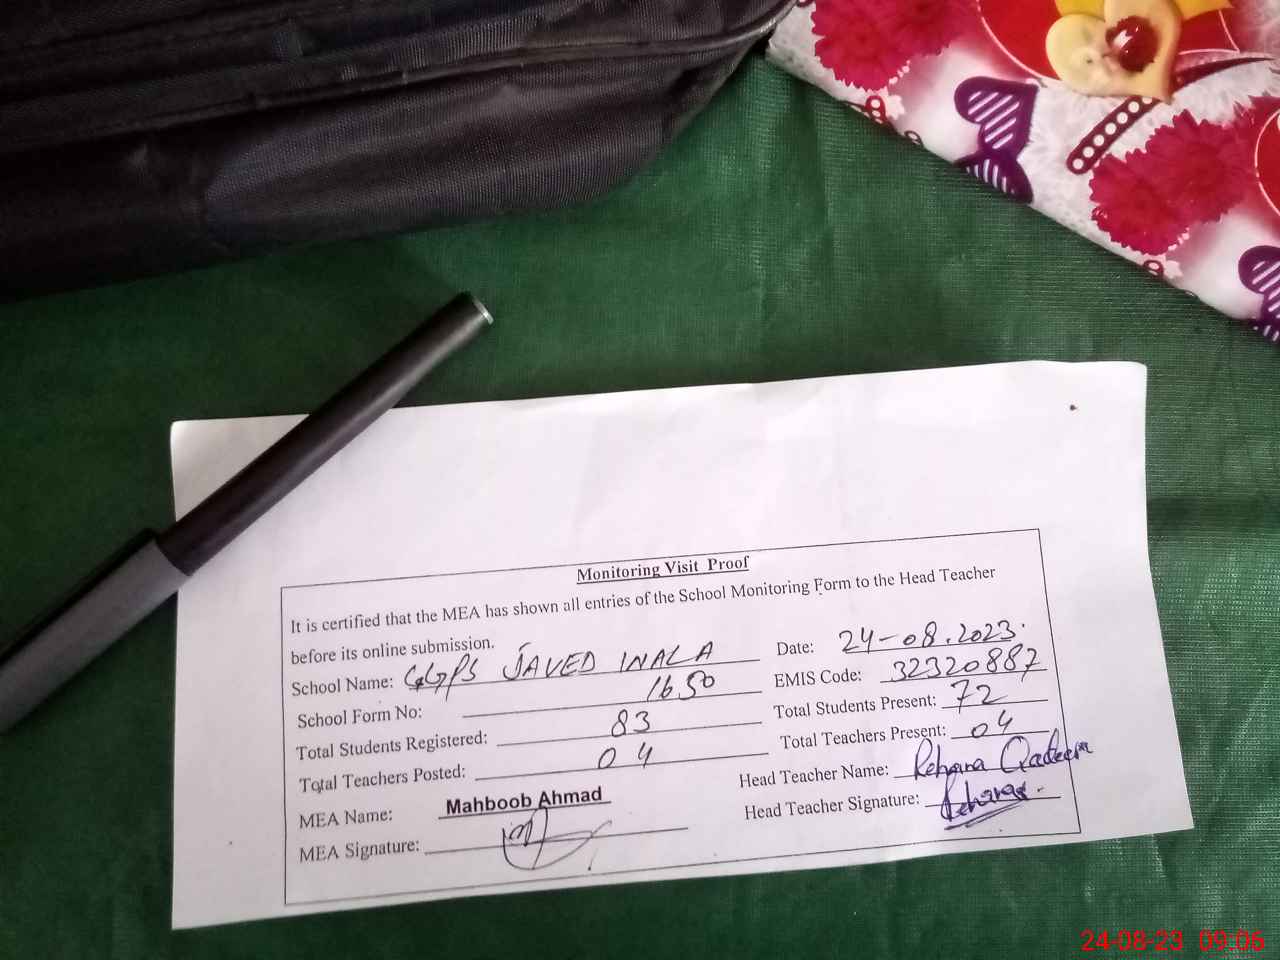 Monitoring Visit Proof
It is certified that the MEA has shown all entries of the School Monitoring Form to the Head Teacher
before its online submission.
Date: 24-08.2023.
School Name: GGPS JAVED INALA
EMIS Code: 32320887
School Form No: 1650
Total Students Present: 72
Total Students Registered: 83
Total Teachers Present: 04
Total Teachers Posted: 04
Head Teacher Name: Rehana Qadeer
MEA Name: Mahboob Ahmad
Head Teacher Signature: Rehana
MEA Signature:
24-08-23 09:06